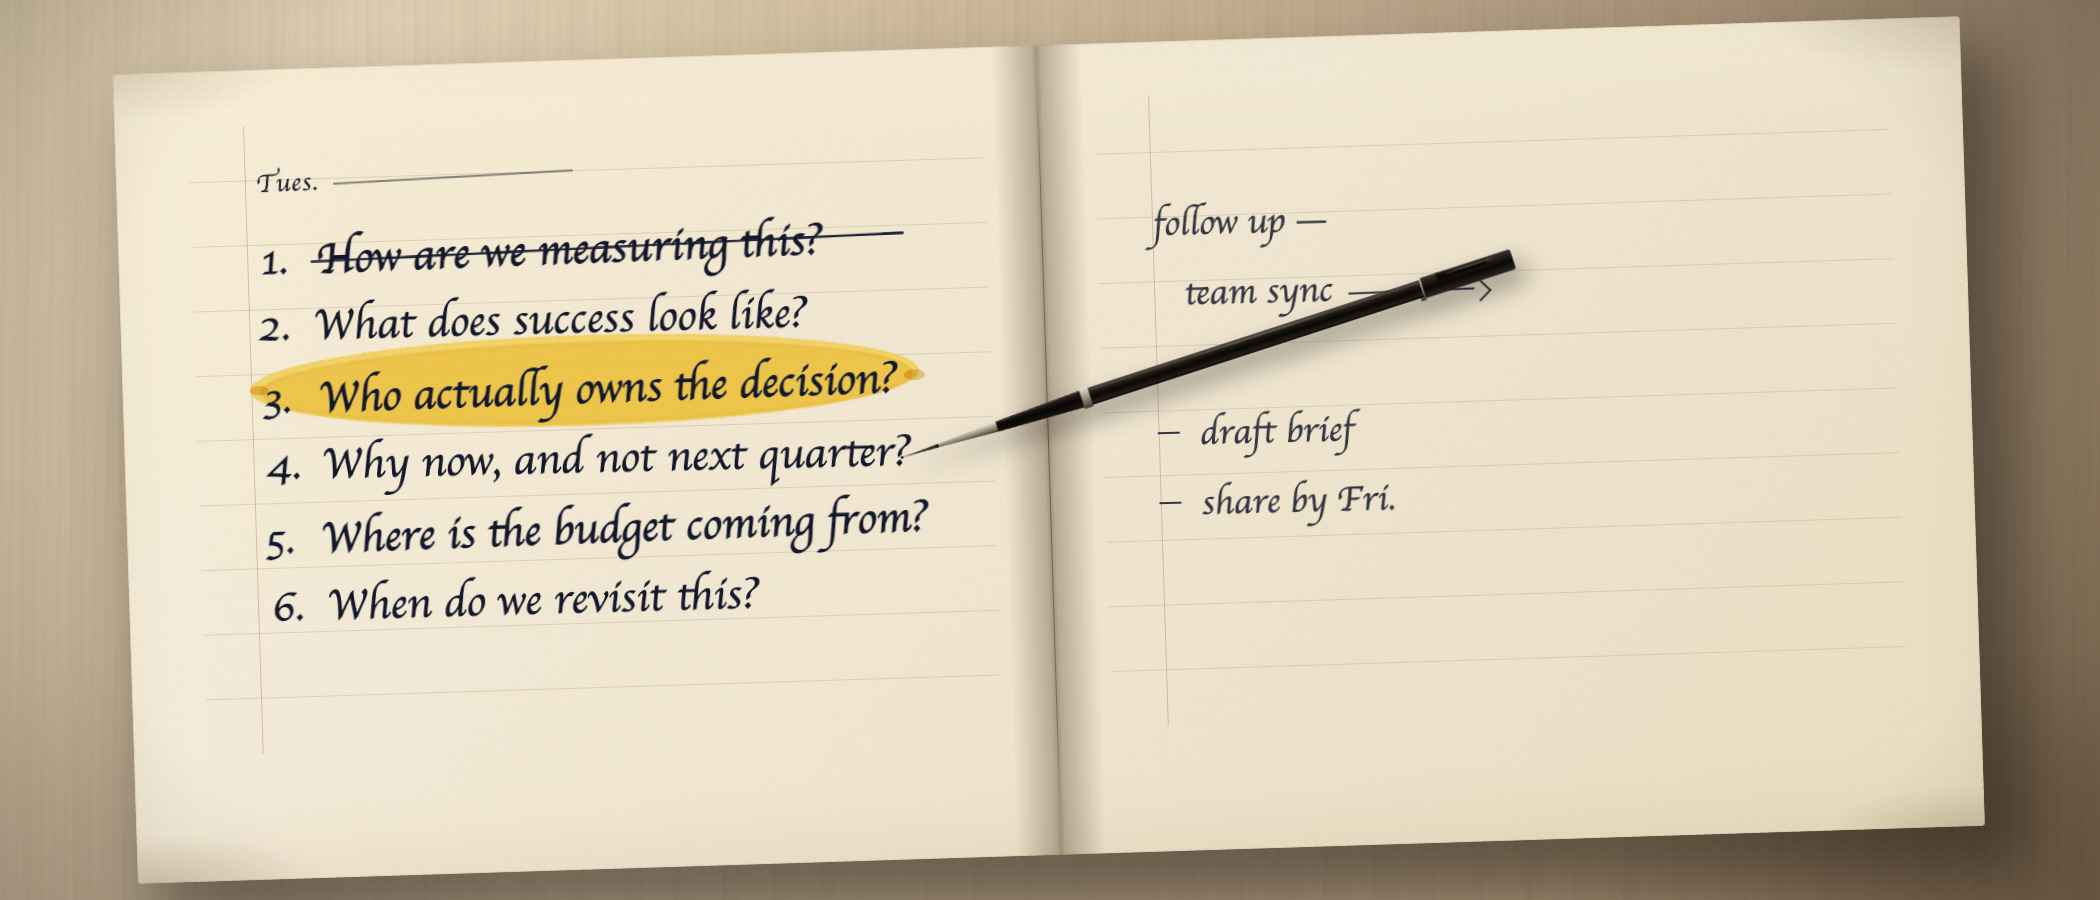 Tues.
1. How are we measuring this?
2. What does success look like?
3. Who actually owns the decision?
4. Why now, and not next quarter?
5. Where is the budget coming from?
6. When do we revisit this?
follow up —
team sync →
— draft brief
— share by Fri.